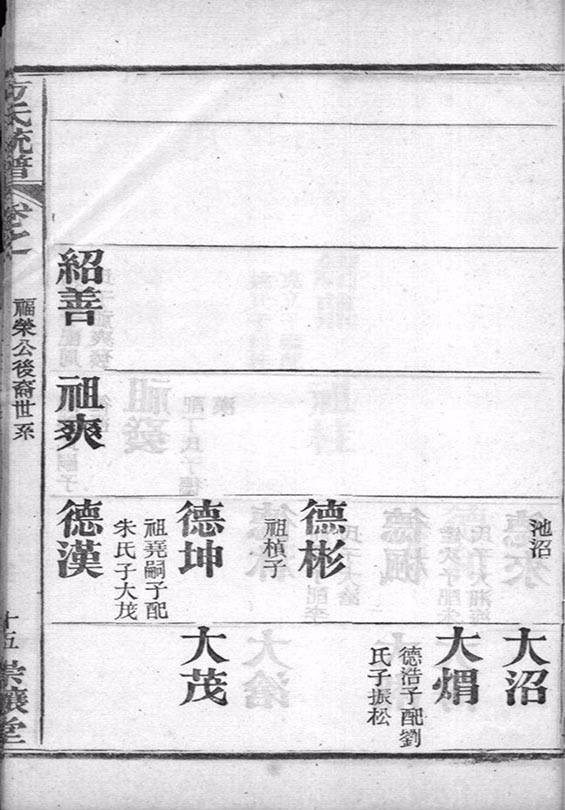 池沼
大沼
大焆
德浩子配劉
氏子振松
德彬
祖楨子
德坤
祖堯嗣子配
朱氏子大茂
大茂
紹善
祖爽
德漢
方氏統譜
卷之
福榮公後裔世系
十五
堂